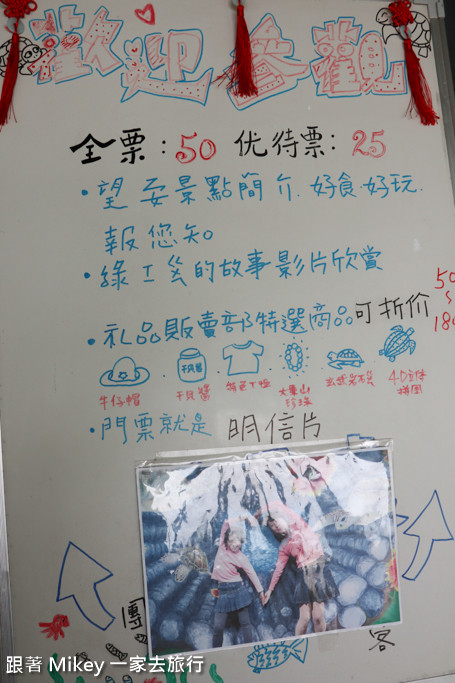 歡迎參觀
全票：50 优待票：25
·望安景點簡介.好食.好玩.
報您知。
·綠ㄍㄨㄟ的故事影片欣賞
50
~
180
·礼品販賣部特選商品可折价
牛仔帽
干貝醬
特色T恤
4D立体
拼圖
·門票就是 明信片
團
客
跟著 Mikey 一家去旅行